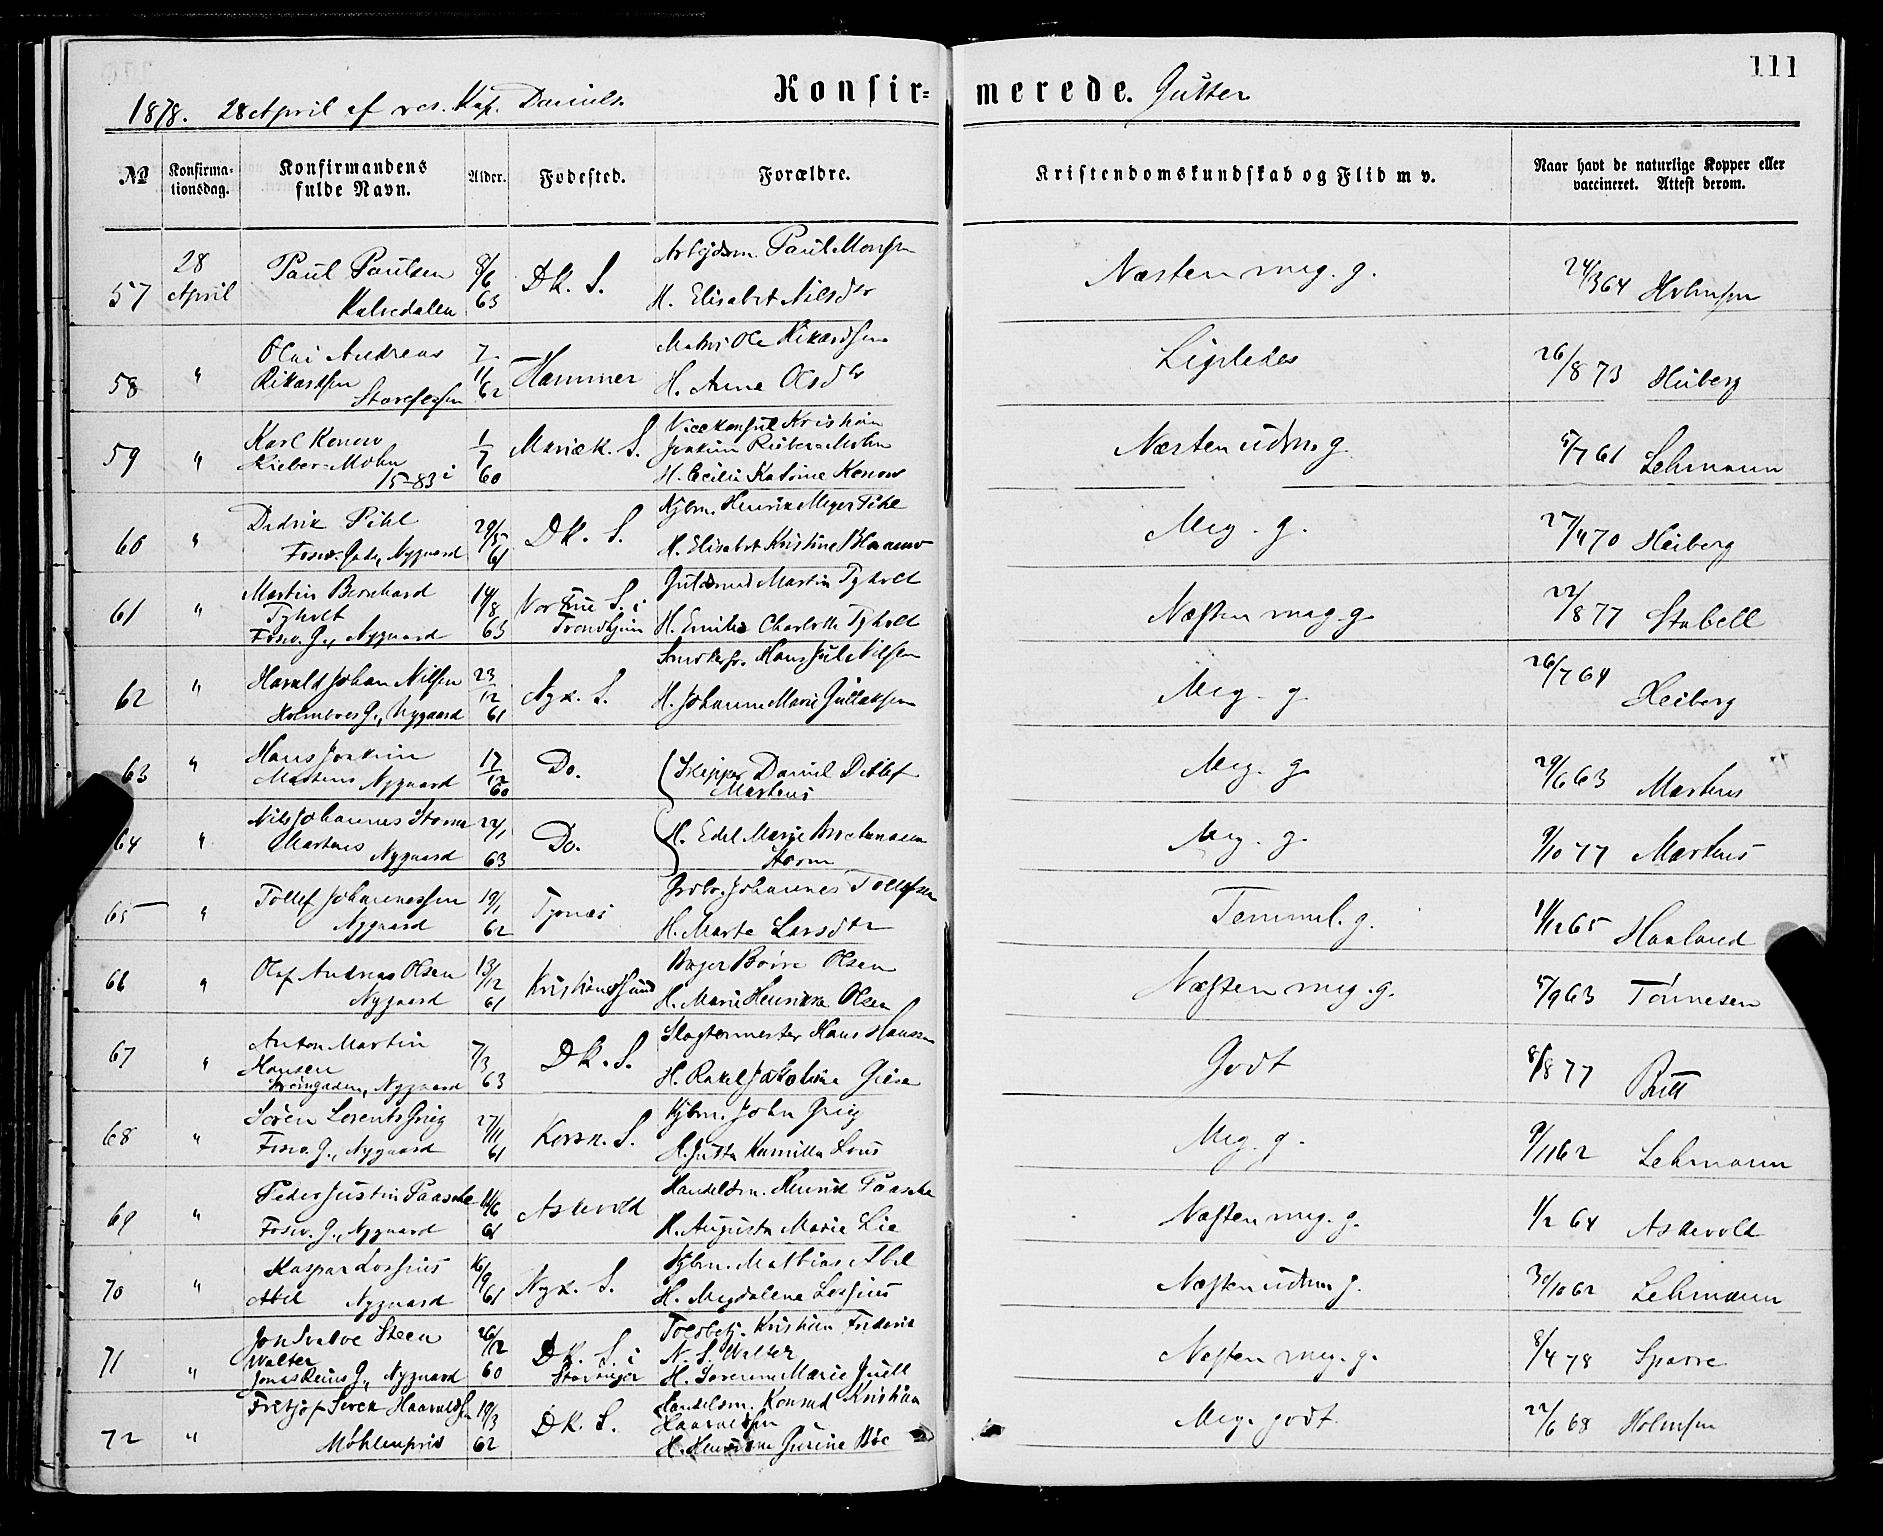 111
Konfir- merede. Gutter
1878. 28 April af res. Kap. Daniels.
№ Konfirma- tionsdag. Konfirmandens fulde Navn. Alder. Fødested. Forældre. Kristendomskundskab og Flid m v. Naar havt de naturlige Kopper eller vaccineret. Attest derom.
28 Paul Paulsen 8/6 Arbejdsm. Paul Monsen
57 April Kalvedalen 63 DK. S. H. Elisabet Nilsdtr Næsten meg. g. 24/3 64 Holmsen
Olai Andreas 7
58 " Rikardsen 11/62 Hammer H. Anne Olsdtr Ligeledes 26/8 73 Heiberg
Karl Konow 1 Vicekonsul Kristian
59 " Rieber-Mohn 7 Mariæk. S. Joakim Rieber-Mohn Næsten udm. g. 5/7 61 Lehmann
15-83 60 H. Cecilie Katrine Konow
Didrik Pihl 29/5 Kjbm. Henrik Meyer Pihl
60 " Fosw. Gade, Nygaard 61 DK. S. H. Elisabet Kristine Meg. g. 27/4 70 Heiberg
Martin Bernhard 14/8 Guldsmed Martin Tyholt
61 " Tyholt Vor Frue S. i Næsten meg. g. 22/8 77 Stabell
Fosw. G., Nygaard 63 Trondhjem H. Emilie Charlotte Tyholt
Harald Johan Nilsen 23 Hans Jul. Nilsen
62 " Nygaard 12/61 Nyk. S. H. Johanne Marie Gullaksen Meg. g. 26/7 64 Heiberg
Hans Joakim 17
63 " Martens Nygaard 12/60 Do. Skipper Daniel Detlef Martens Meg. g. 29/6 63 Martens
Nils Johannes Storm 22/1
64 " Martens Nygaard 63 Do. H. Edel Marie Storm Meg. g. 9/10 77 Martens
Tollef Johannessen 19/1 Johannes Tollefsen
65 " Nygaard 62 Tysnæs H. Marte Larsdtr Temmel. g. 11/12 65 Haaland
Olaf Andreas Olsen 13/12 Bager Børre Olsen
66 " Nygaard 61 Kristianssund H. Marie Henrikka Olsen Næsten meg. g. 5/9 63 Tønnesen
Anton Martin 7/3 Slagtermester Hans Hansen
67 " Hansen DK. S. Godt 8/8 77 Britt
Nygaard 63 H. Rakel Jakobine Giese
Søren Lorents Grieg 27/11 Kjbm. John Grieg
68 " Fosw. G., Nygaard 61 Korsk. S. H. Jutta Kamilla Lous Meg. g. 9/11 62 Lehmann
Peder Justin Paasche 11/6 Handelsm. Henrik Paasche
69 " Fosw. G., Nygaard 61 Askevold H. Augusta Marie Lie Næsten meg. g. 1/2 64 Askevold
Kaspar Lossius 16/9 Kjbm. Mathias Abel
70 " Abel Nygaard 61 Nyk. S. H. Magdalena Lossius Næsten udm. g. 30/10 62 Lehmann
Jon Steen 26/2 Toldbetj. Kristian Frederik
71 " Walter DK. S. i N. S. Walter Næsten meg. g. 8/4 78 Sparre
Jonas Reins G., Nygaard 60 Stavanger H. Severine Marie Juell
Fritjof Severin Haarvedsen 19/3 Handelsm. Konrad Kristian
72 " Møhlenpris 62 DK. S. Meg. godt 22/6 68 Holmsen
H. Gurine Bøe